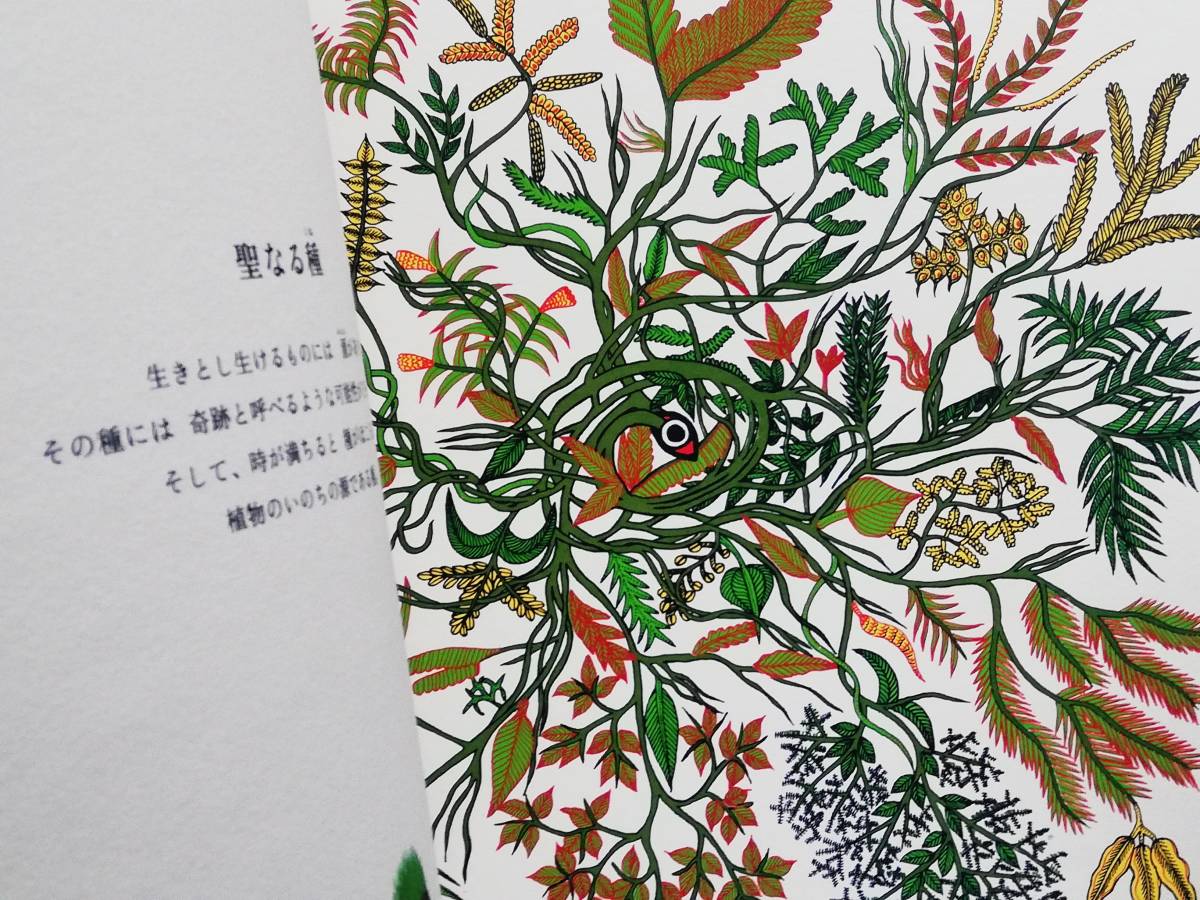 聖なる種
生きとし生けるものには
その種には 奇跡と呼べるような可能性
そして、時が満ちると
植物のいのちの源である